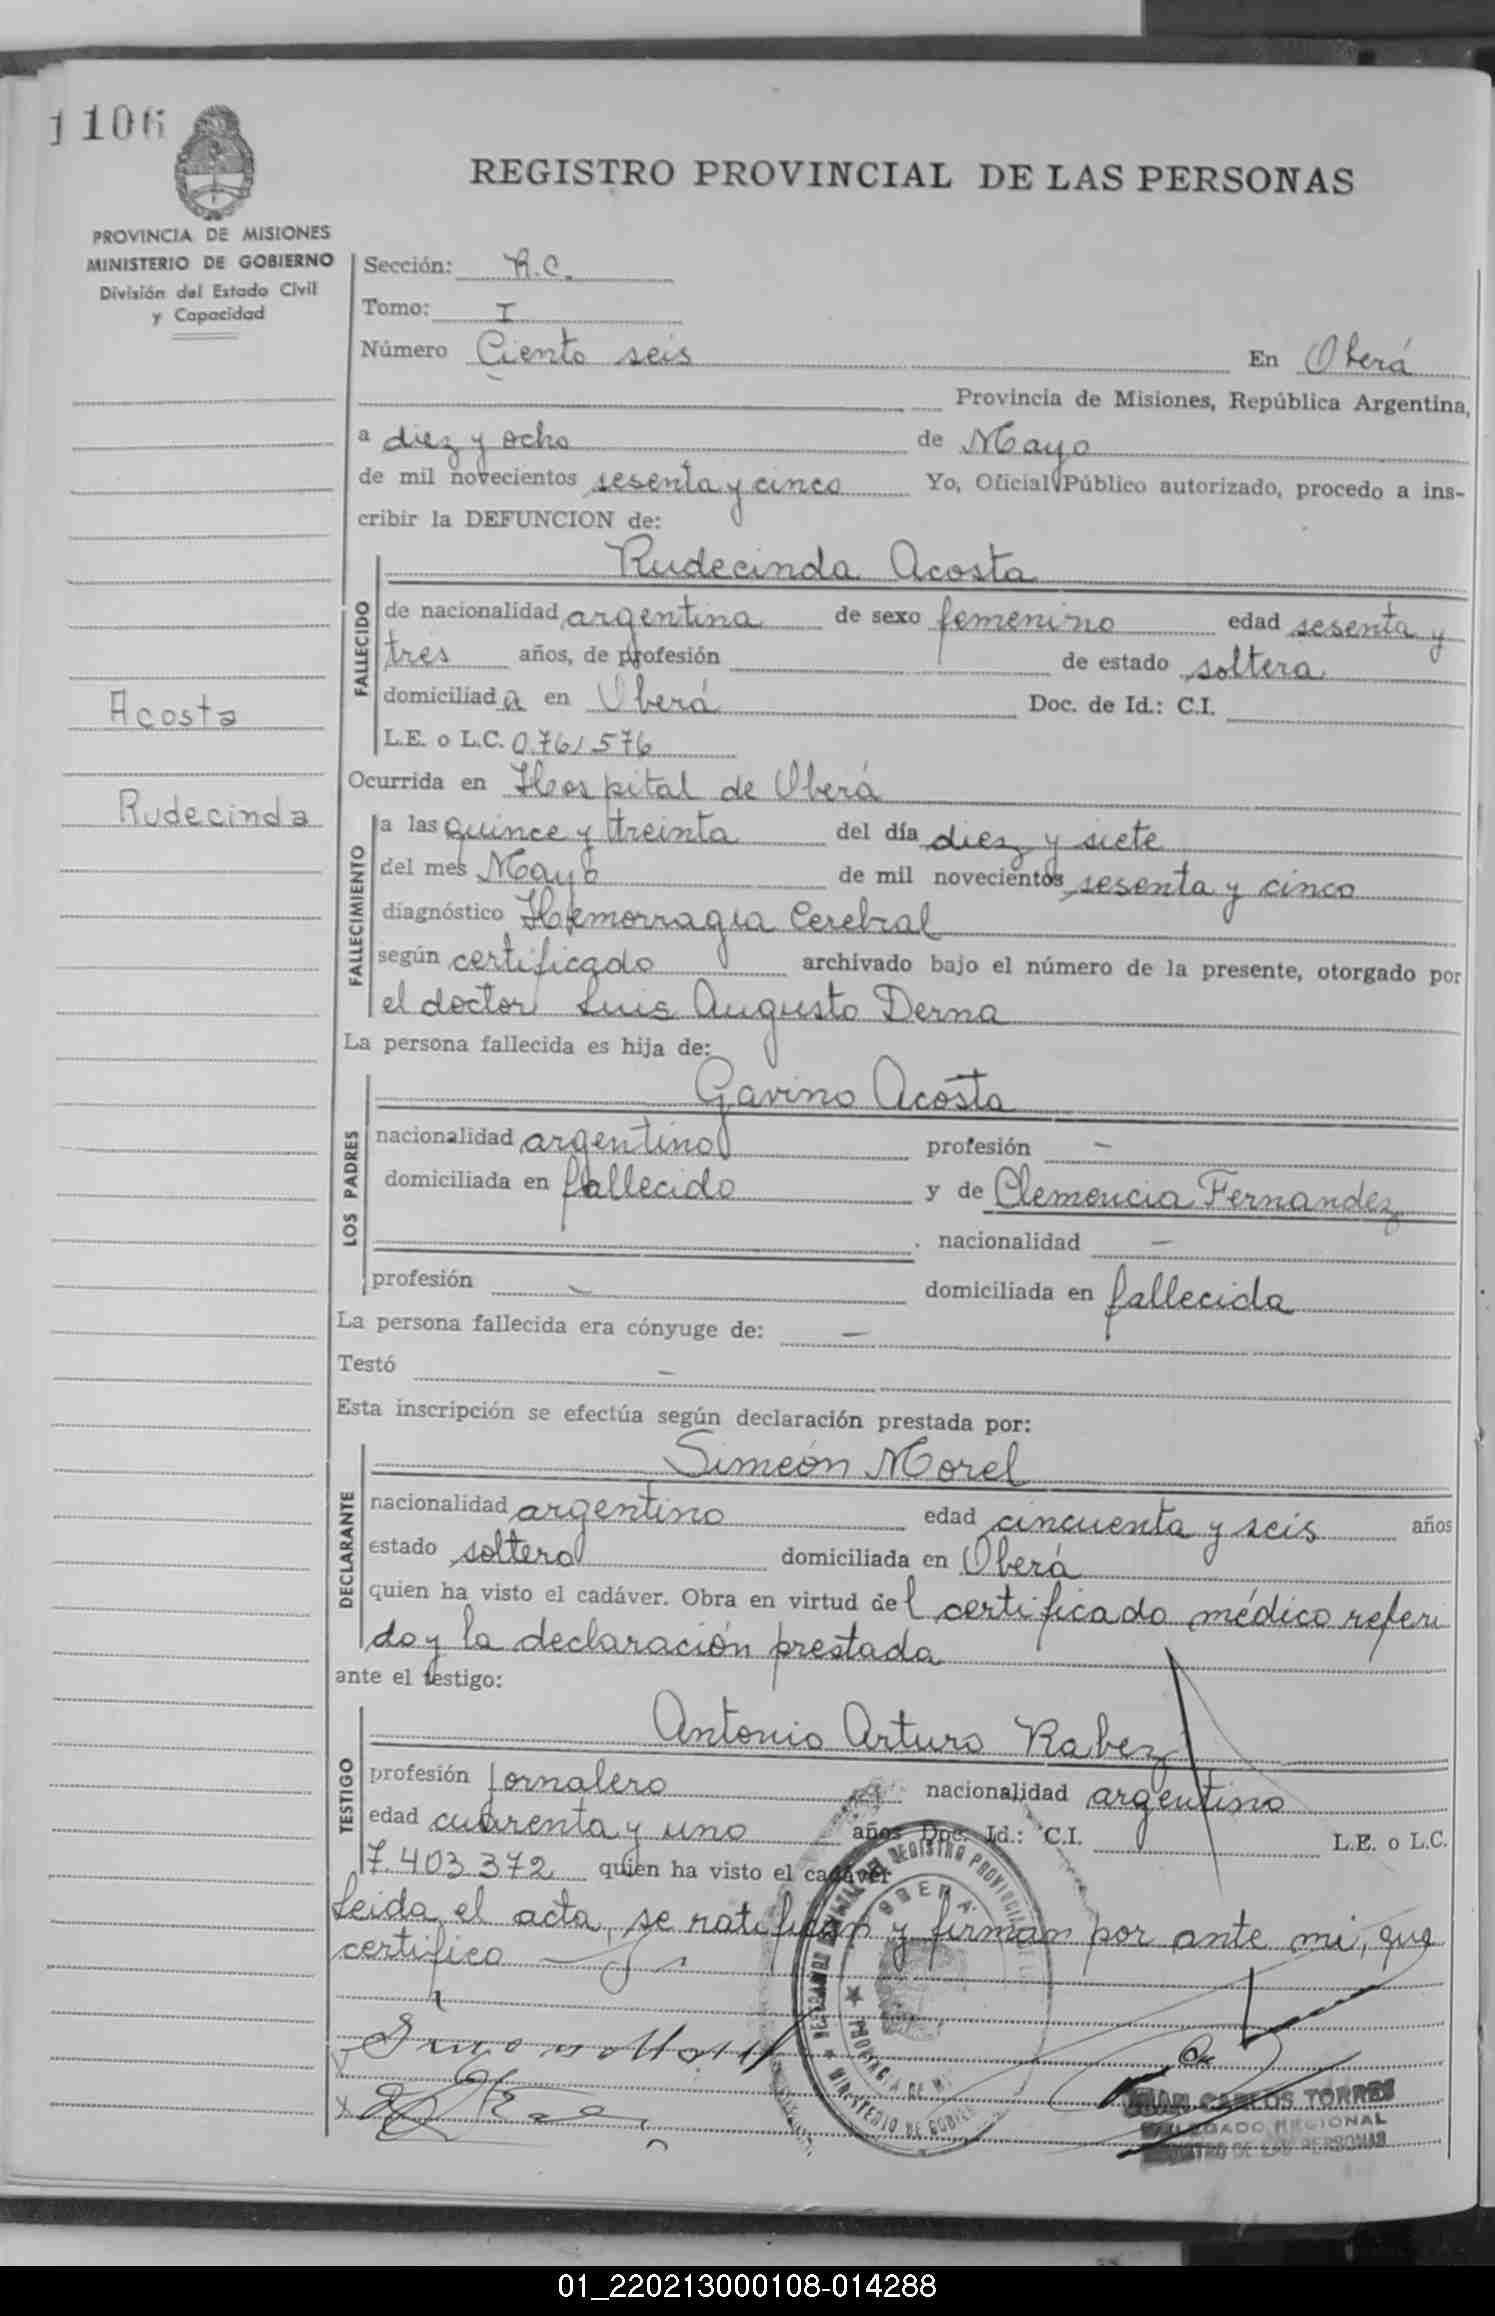 1 106
REGISTRO PROVINCIAL DE LAS PERSONAS
PROVINCIA DE MISIONES
MINISTERIO DE GOBIERNO
División del Estado Civil
y Capacidad
Acosta
Rudecinda
Sección: R.C.
Tomo: I
Número Ciento seis En Oberá
Provincia de Misiones, República Argentina,
a diez y ocho de Mayo
de mil novecientos sesenta y cinco Yo, Oficial Público autorizado, procedo a ins-
cribir la DEFUNCION de:
FALLECIDO
Rudecinda Acosta
de nacionalidad argentina de sexo femenino edad sesenta y
tres años, de profesión de estado soltera
domiciliada en Oberá Doc. de Id.: C.I.
L.E. o L.C. 0.761.576
Ocurrida en Hospital de Oberá
FALLECIMIENTO
a las quince y treinta del día diez y siete
del mes Mayo de mil novecientos sesenta y cinco
diagnóstico Hemorragia Cerebral
según certificado archivado bajo el número de la presente, otorgado por
el doctor Luis Augusto Derna
La persona fallecida es hija de:
LOS PADRES
Gavino Acosta
nacionalidad argentino profesión –
domiciliada en fallecido y de Clemencia Fernandez
. nacionalidad –
profesión – domiciliada en fallecida
La persona fallecida era cónyuge de: –
Testó –
Esta inscripción se efectúa según declaración prestada por:
DECLARANTE
Simeón Morel
nacionalidad argentino edad cincuenta y seis años
estado soltero domiciliada en Oberá
quien ha visto el cadáver. Obra en virtud del certificado médico referi
do y la declaración prestada
ante el testigo:
TESTIGO
Antonio Arturo Rabez
profesión Jornalero nacionalidad argentino
edad cuarenta y uno años Doc. Id.: C.I. L.E. o L.C.
7.403.372 quien ha visto el cadáver
Leida el acta, se ratifican y firman por ante mi, que
certifico
REGISTRO PROVINCIAL DE
OBERA
PROVINCIA DE MI
MINISTERIO DE GOBIER
JUAN CARLOS TORRES
DELEGADO REGIONAL
REGISTRO DE LAS PERSONAS
01_220213000108-014288